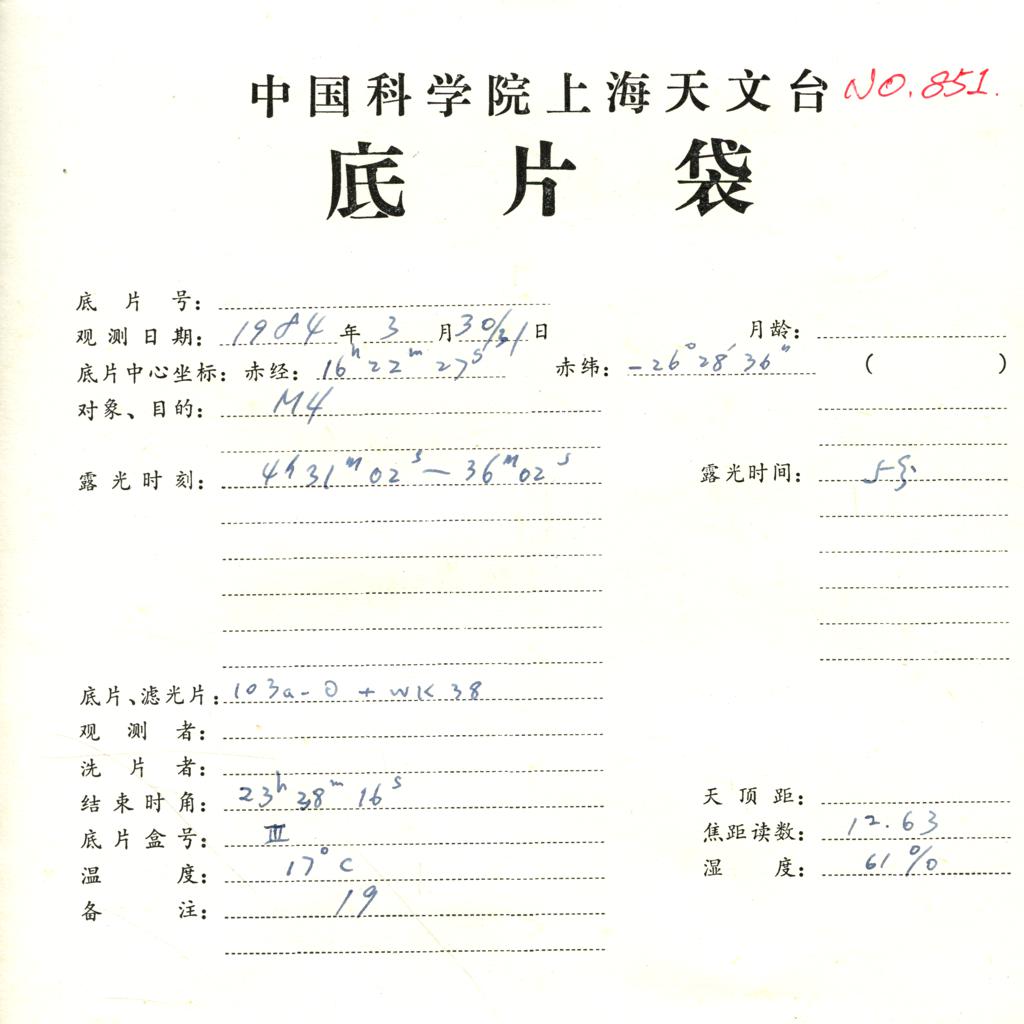 中国科学院上海天文台 NO.851.
底片袋
底片号:
观测日期: 1984年3月30/31日 月龄:
底片中心坐标: 赤经: 16h22m27s 赤纬: -26°28′36″ ( )
对象、目的: M4
露光时刻: 4h31m02s—36m02s 露光时间: 5分
底片、滤光片: 103a-O + WK38
观测者:
洗片者:
结束时角: 23h38m16s 天顶距:
底片盒号: III 焦距读数: 12.63
温度: 17°C 湿度: 61%
备注: 19